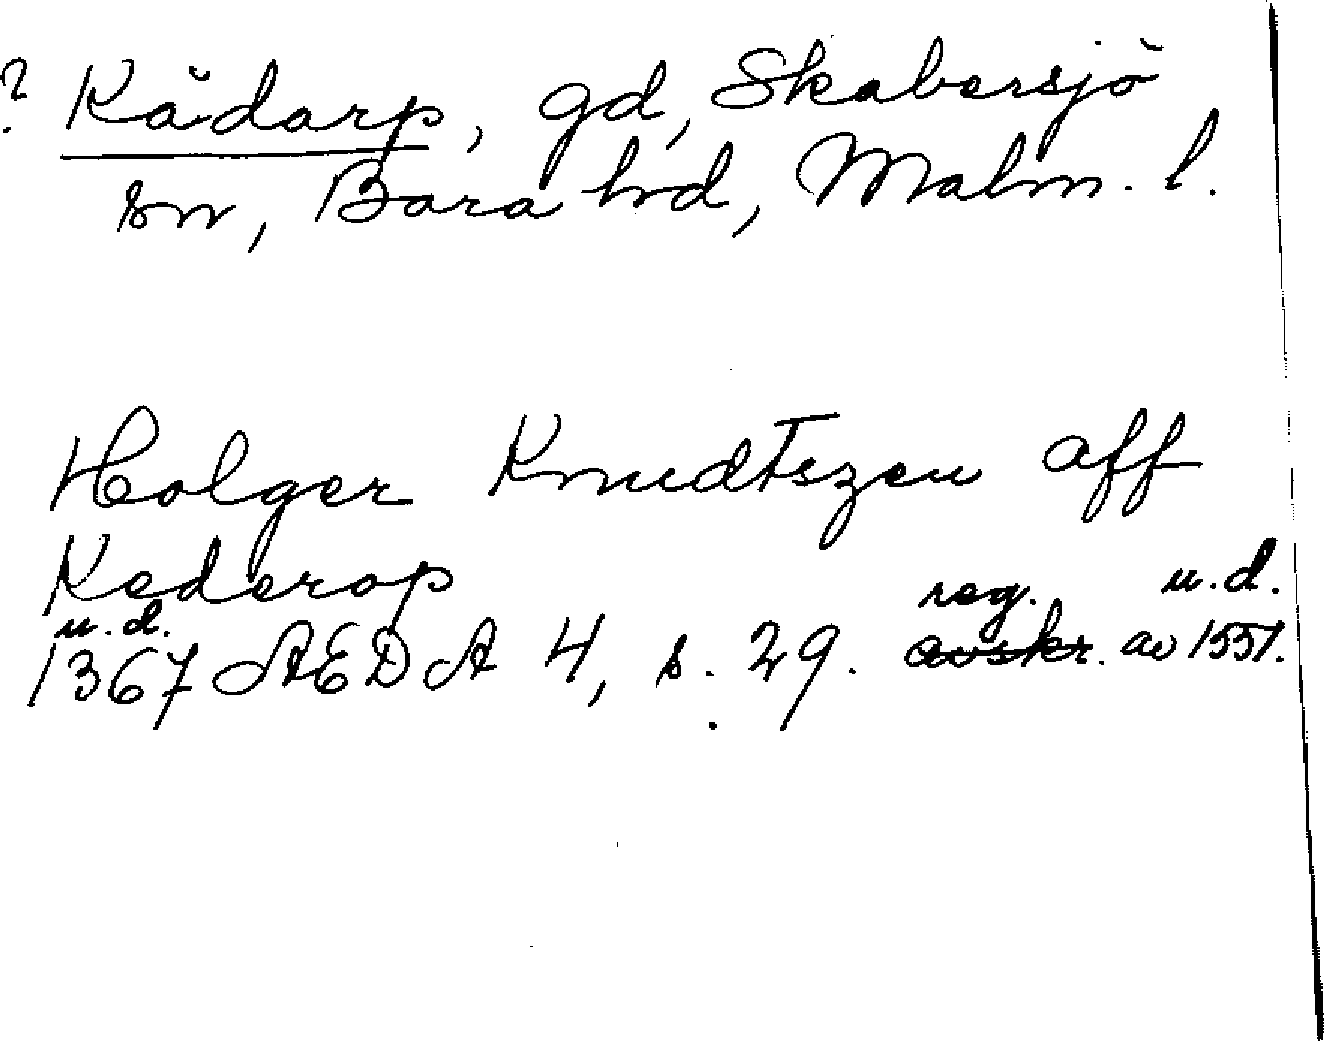 ? Kädarp, gd, Skabersjö
sn, Bara hd, Malm. l.
Holger Knudtszen aff
Kederop
u.d. reg. u.d.
1367 AEDA 4, s. 29. avskr. av 1551.